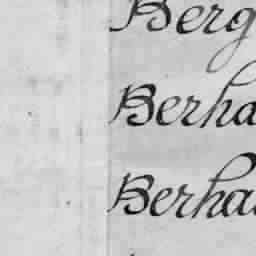 Berg
Berha
Berha